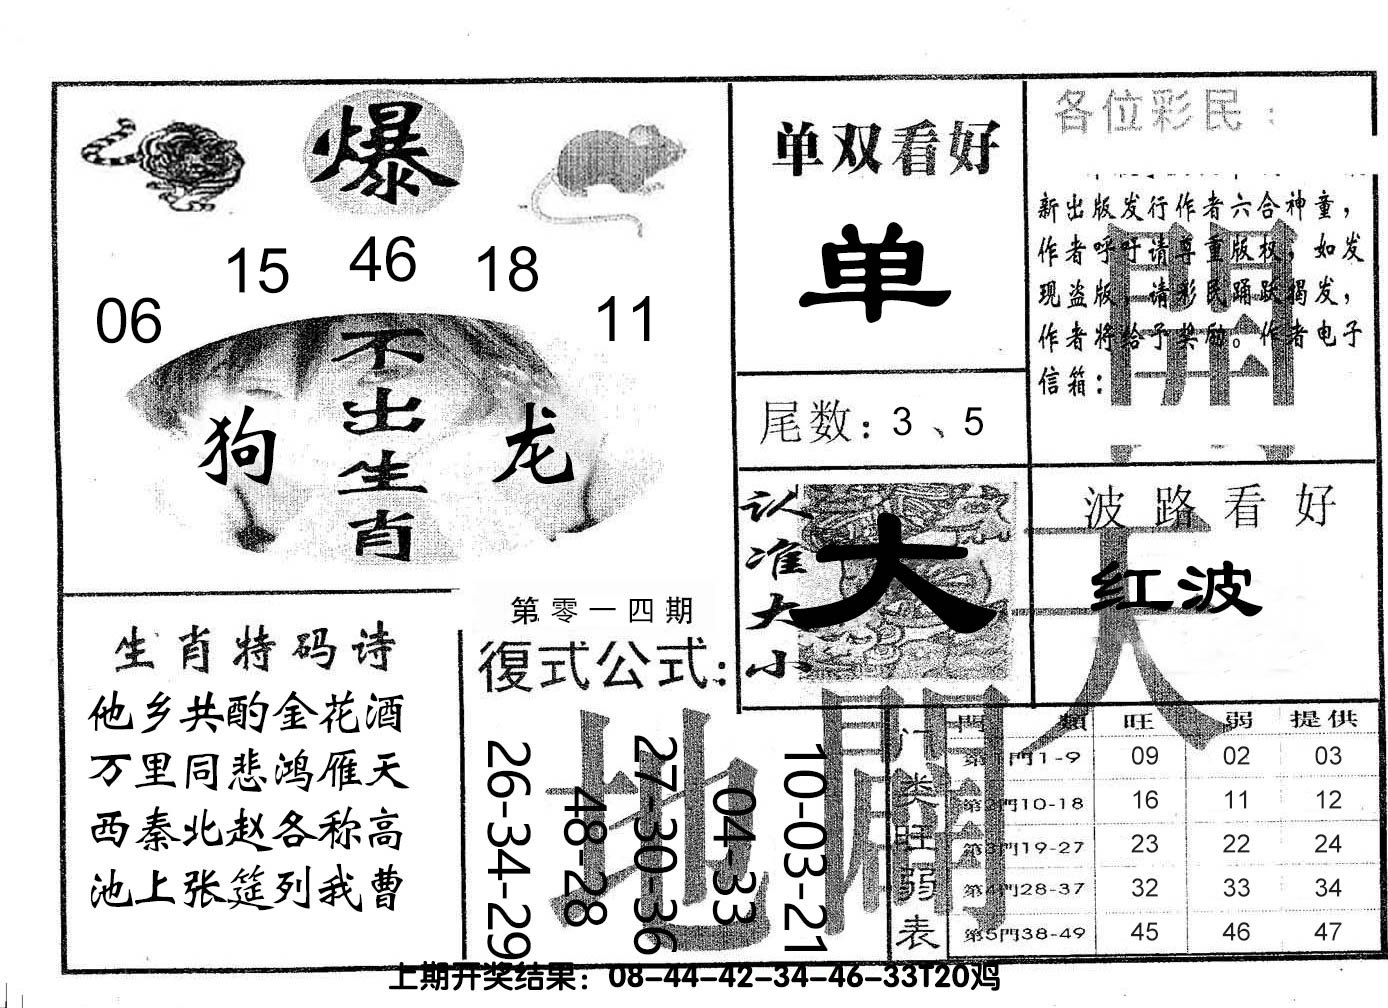 爆
06 15 46 18 11
不出生肖
狗
龙
单双看好
单
尾数：3、5
认准大小
大
各位彩民：
新出版发行作者六合神童，
作者呼吁请尊重版权，如发
现盗版，请彩民踊跃揭发，
作者将给予奖励。作者电子
信箱：
波路看好
红波
生肖特码诗
他乡共酌金花酒
万里同悲鸿雁天
西秦北赵各称高
池上张筵列我曹
第零一四期
復式公式：
26-34-29
48-28
27-30-36
04-33
10-03-21
天
地
門类旺弱表
門類 旺 弱 提供
第1門1-9 09 02 03
第2門10-18 16 11 12
第3門19-27 23 22 24
第4門28-37 32 33 34
第5門38-49 45 46 47
上期开奖结果：08-44-42-34-46-33T20鸡